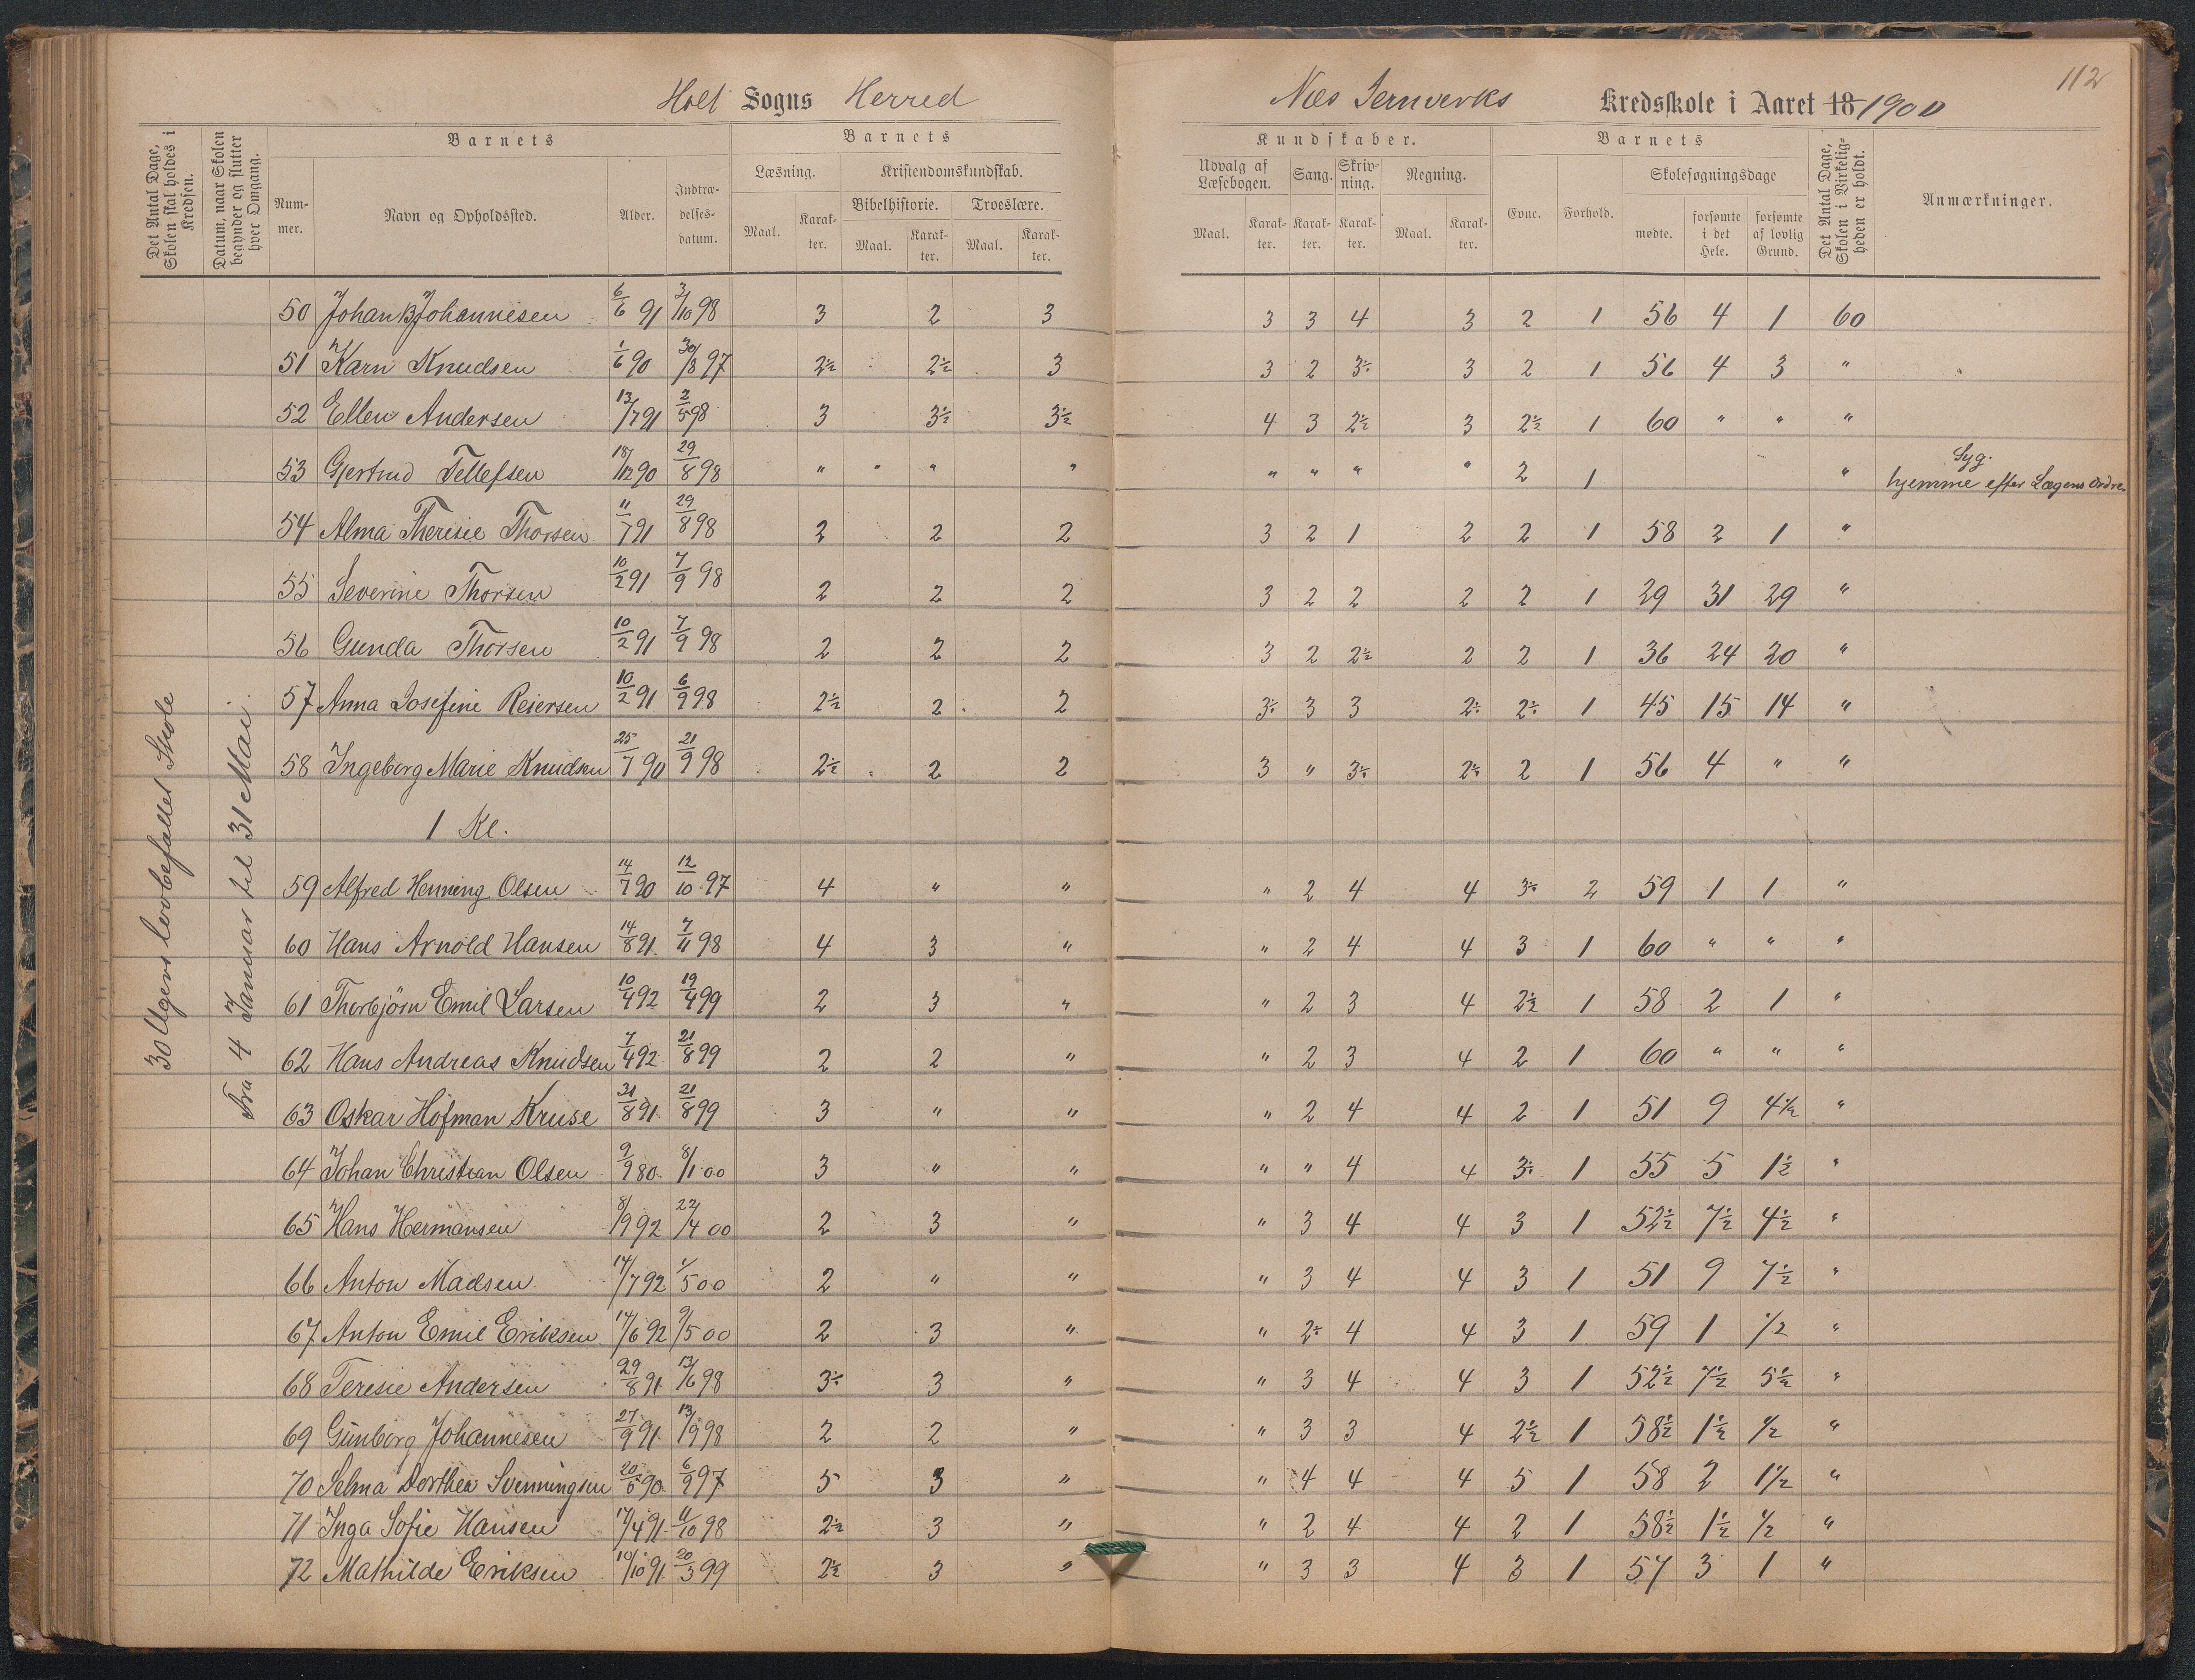 Holt Sogns Herred
Næs Jernverks Kredsskole i Aaret 18 1900
112
Det Antal Dage, Skolen skal holdes i Kredsen.
Datum, naar Skolen begynder og slutter hver Omgang.
Barnets
Nummer.
Navn og Opholdssted.
Alder.
Indtrædelsesdatum.
Barnets
Læsning.
Maal.
Karakter.
Kristendomskundskab.
Bibelhistorie.
Maal.
Karakter.
Troeslære.
Maal.
Karakter.
Kundskaber.
Udvalg af Læsebogen.
Maal.
Karakter.
Sang.
Karakter.
Skrivning.
Karakter.
Regning.
Maal.
Karakter.
Barnets
Evne.
Forhold.
Skolesøgningsdage
mødte.
forsømte i det Hele.
forsømte af lovlig Grund.
Det Antal Dage, Skolen i Virkeligheden er holdt.
Anmærkninger.
30 Ugers lovbefallet Skole
Fra 4 Januar til 31 Mai.
50 Johan B Johannesen 6/6 91 3/10 98 3 2 3 3 3 4 3 2 1 56 4 1 60
51 Karn Knudsen 1/6 90 30/8 97 2½ 2½ 3 3 2 3÷ 3 2 1 56 4 3 "
52 Ellen Andersen 13/7 91 2/5 98 3 3½ 3½ 4 3 2½ 3 2½ 1 60 " " "
53 Gjertrud Tellefsen 18/12 90 29/8 98 " " " " " " " " 2 1 " Syg. hjemme efter Lægens Ordre.
54 Alma Theresie Thorsen 11/7 91 29/8 98 2 2 2 3 2 1 2 2 1 58 2 1 "
55 Severine Thorsen 10/2 91 7/9 98 2 2 2 3 2 2 2 2 1 29 31 29 "
56 Gunda Thorsen 10/2 91 7/9 98 2 2 2 3 2 2½ 2 2 1 36 24 20 "
57 Anna Josefine Reiersen 10/2 91 6/9 98 2½ 2 2 3÷ 3 3 2÷ 2÷ 1 45 15 14 "
58 Ingeborg Marie Knudsen 25/7 90 21/9 98 2½ 2 2 3 " 3÷ 2÷ 2 1 56 4 " "
1 Kl.
59 Alfred Henning Olsen 14/7 90 12/10 97 4 " " " 2 4 4 3÷ 2 59 1 1 "
60 Hans Arnold Hansen 14/8 91 7/11 98 4 3 " " 2 4 4 3 1 60 " " "
61 Thorbjörn Emil Larsen 10/4 92 19/4 99 2 3 " " 2 3 4 2½ 1 58 2 1 "
62 Hans Andreas Knudsen 7/4 92 21/8 99 2 2 " " 2 3 4 2 1 60 " " "
63 Oskar Hofman Kruse 31/8 91 21/8 99 3 " " " 2 4 4 2 1 51 9 4½ "
64 Johan Christian Olsen 9/9 80 8/1 00 3 " " " " 4 4 3÷ 1 55 5 1½ "
65 Hans Hermansen 8/9 92 22/4 00 2 3 " " 3 4 4 3 1 52½ 7½ 4½ "
66 Anton Madsen 14/7 92 1/5 00 2 " " " 3 4 4 3 1 51 9 7½ "
67 Anton Emil Eriksen 14/6 92 9/5 00 2 3 " " 2÷ 4 4 3 1 59 1 ½ "
68 Teresie Andersen 29/8 91 13/6 98 3÷ 3 " " 3 4 4 3 1 52½ 7½ 5½ "
69 Gunborg Johannesen 27/9 91 13/9 98 2 2 " " 3 3 4 2½ 1 58½ 1½ ½ "
70 Selma Dorthea Svenningsen 20/5 90 6/9 97 5 3 " " 4 4 4 5 1 58 2 1½ "
71 Inga Sofie Hansen 17/4 91 11/10 98 2½ 3 " " 2 4 4 2 1 58½ 1½ ½ "
72 Mathilde Eriksen 10/10 91 20/3 99 2½ 3 " " 3 3 4 3 1 57 3 1 "